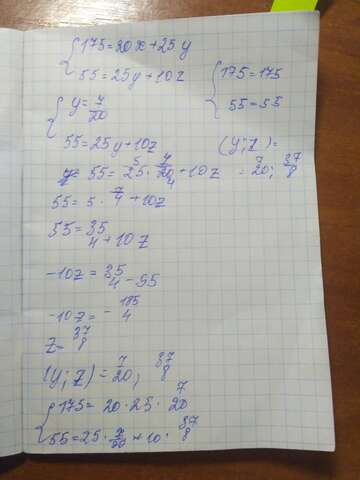 175=20x+25y
55=25y+10z
y=7/20
55=25y+10z
55=25·7/20+10z
55=5·7/4+10z
55=35/4+10z
-10z=35/4-55
-10z=-185/4
z=37/8
(y;z)=7/20; 37/8
175=20·25·7/20
55=25·7/20+10·37/8
175=175
55=55
(y;z)=
=7/20; 37/8